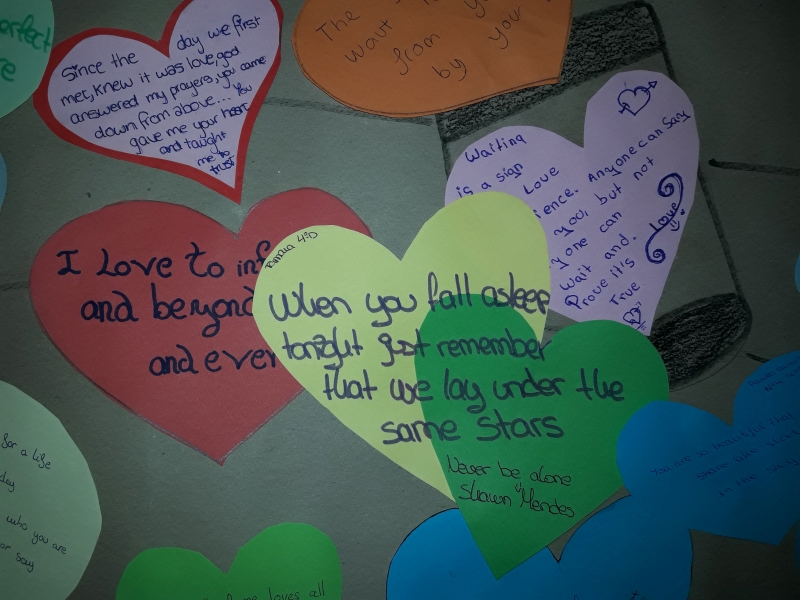 Since the day we first
met, knew it was love, god
answered my prayers, you came
down from above... you
gave me your heart
and taught
me to
trust
The
wait
from your
by
Waiting
is a sign
Love
ience. Anyone can say
you, but not
yone can
Wait and
Prove it's
True
Love
I Love to inf
and beyond
and ever
4ºD
When you fall asleep
tonight just remember
that we lay under the
same stars
Never be alone
Shawn Mendes
for a life
day
who you are
or say
loves all
You are so beautiful that
in the sky